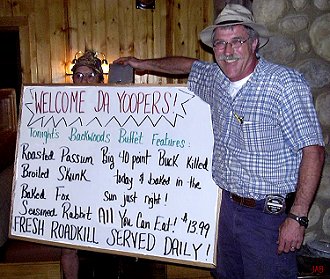 WELCOME DA YOOPERS!
Tonight's Backwoods Buffet Features:
Roasted Passum Big 40 point Buck Killed
Broiled Skunk today & baked in the
Baked Fox sun just right!
Seasoned Rabbit All You Can Eat! $13.99
FRESH ROADKILL SERVED DAILY!